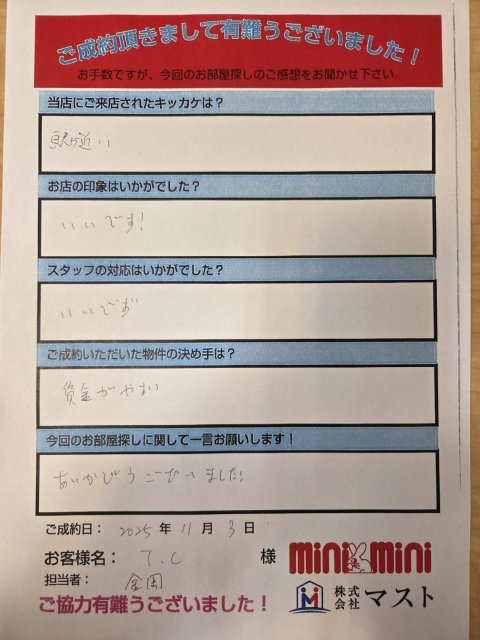 ご成約頂きまして有難うございました！
お手数ですが、今回のお部屋探しのご感想をお聞かせ下さい。
当店にご来店されたキッカケは？
駅が近い
お店の印象はいかがでした？
いいです！
スタッフの対応はいかがでした？
いいです
ご成約いただいた物件の決め手は？
賃金がやすい
今回のお部屋探しに関して一言お願いします！
ありがとうございました！
ご成約日： 2025 年 11 月 3 日
お客様名： T.C 様
担当者：
mini mini
株式会社 マスト
ご協力有難うございました！